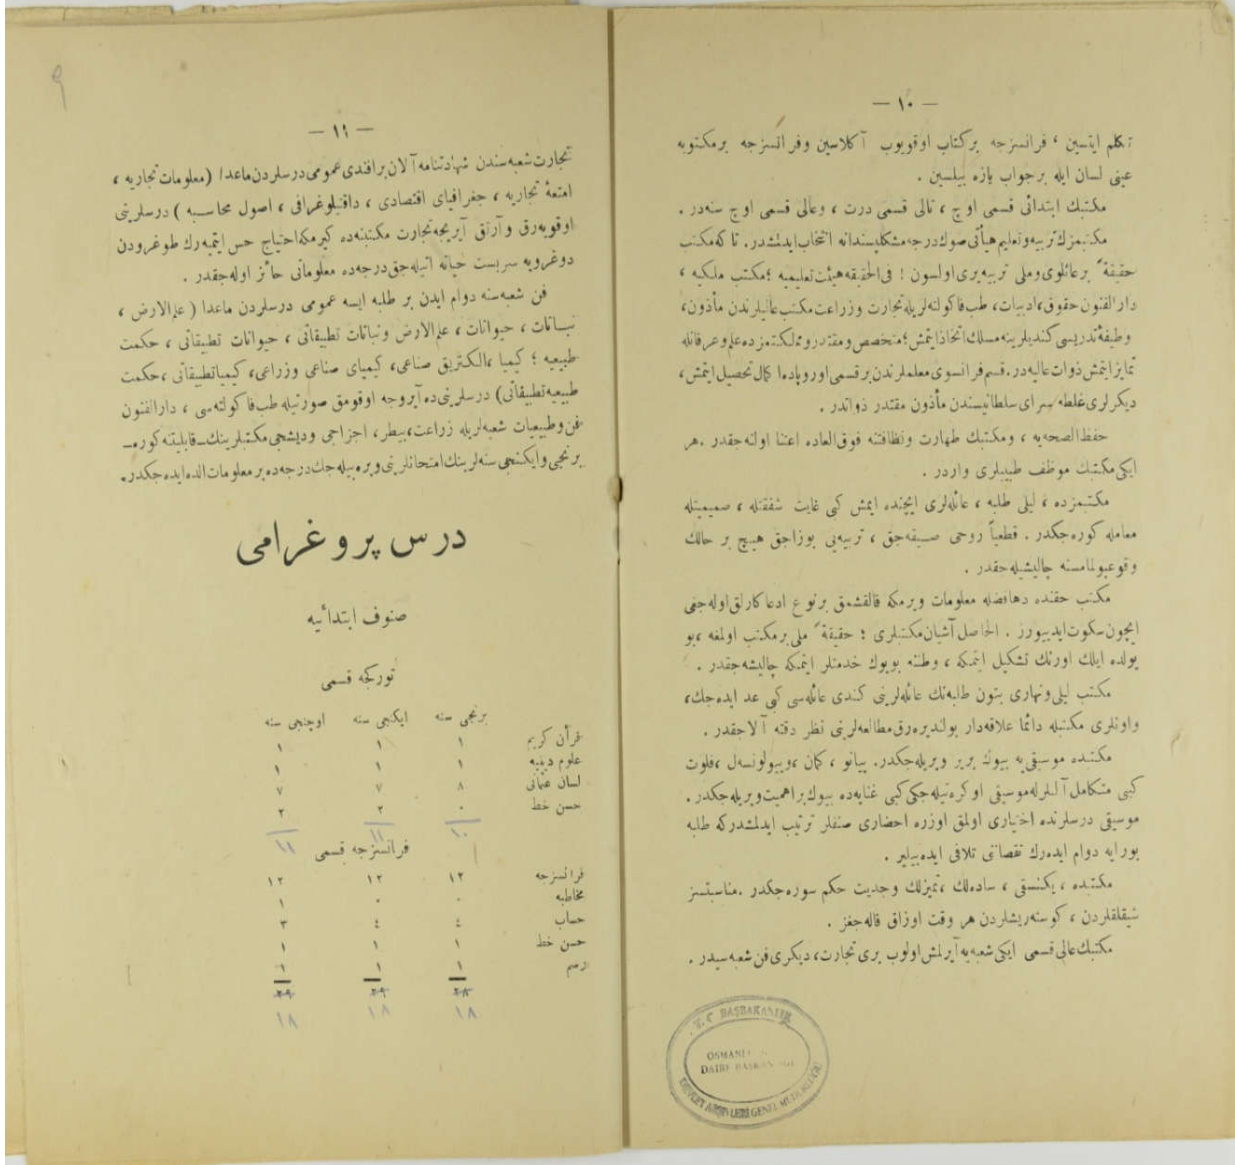 — ١٠ —
تكلم ايتسين ، فرانسزجه بركتاب اوقويوب آكلاسين وفرانسزجه برمكتوبه
عينى لسان ايله برجواب يازه بيلسين .
مكتبك ابتدائى قسمى اوچ ، تالى قسمى درت ، وعالى قسمى اوچ سنه در .
مكتبمزك تربيه وتعليم هيأتى صوك درجه مشكلپسندانه انتخاب ايدلمشدر. تا كه مكتب
حقيقةً برعائلوى وملى تربيه يرى اولسون ! فى الحقيقه هيئت تعليميه ؛ مكتب ملكيه ،
دار الفنون حقوق، ادبيات، طب فاكولته لريله تجارت وزراعت مكتب عاليلرندن مأذون،
وظيفهٔ تدريسى كنديلرينه مسلك اتخاذ ايتمش ؛ متخصص ومقتدر ومملكتمزده علم وعرفانله
تمايز ايتمش ذوات عاليه در. قسم فرانسوى معلملرندن برقسمى اوروپاده اكمال تحصيل ايتمش،
ديكرلرى غلطه سراى سلطانيسندن مأذون مقتدر ذواتدر .
حفظ الصحه يه ، ومكتبك طهارت ونظافتنه فوق العاده اعتنا اولنه جقدر . هر
ايكى مكتبك موظف طبيبلرى واردر .
مكتبمزده ، ليلى طلبه ، عائله لرى ايچنده ايمش كبى غايت شفقتله ، صميميتله
معامله كوره جكدر . قطعياً روحى صيقه جق ، تربيه يى بوزاجق هيچ بر حالك
وقوعبولمامسنه چاليشيله جقدر .
مكتب حقنده دها فضله معلومات ويرمكه قالقشمق برنوع ادعاكارلق اوله جغى
ايچون سكوت ايدييورز . الحاصل آشيان مكتبلرى ؛ حقيقةً ملى برمكتب اولمغه ، بو
يولده ايلك اورنك تشكيل ايتمكه ، وطنه بويوك خدمتلر ايتمكه چاليشه جقدر .
مكتب ليلى ونهارى بتون طلبه نك عائله لرينى كندى عائله سى كبى عد ايده جك،
واونلرى مكتبله دائما علاقه دار بولنديره رق مطالعه لرينى نظر دقته آلاجقدر .
مكتبده موسيقى يه بيوك برير ويريله جكدر. پيانو ، كمان ، ويولونسل ، فلوت
كبى متكامل آلتلرله موسيقى اوكره تيله جكى كبى غنايه ده بيوك براهميت ويريله جكدر .
موسيقى درسلرنده اختيارى اولمق اوزره احضارى صنفلر ترتيب ايدلمشدركه طلبه
بورايه دوام ايده رك نقصانى تلافى ايده بيلير .
مكتبده ، يكنسقى ، ساده لك ، تميزلك وجديت حكم سوره جكدر . مناسبتسز
شيقلقلردن ، كوسته ريشلردن هر وقت اوزاق قاله جغز .
مكتبك عالى قسمى ايكى شعبه يه آيرلمش اولوب برى تجارت، ديكرى فن شعبه سيدر .
T. C. BAŞBAKANLIK
OSMANLI
DAİRE BAŞKANLIĞI
DEVLET ARŞİVLERİ GENEL MÜDÜRLÜĞÜ
٩
— ١١ —
تجارت شعبه سندن شهادتنامه آلان بر افندى عمومى درسلردن ماعدا (معلومات تجاريه ،
امتعهٔ تجاريه ، جغرافياى اقتصادى ، داقتيلوغرافى ، اصول محاسبه ) درسلرينى
اوقويه رق وآرتق آيريجه تجارت مكتبنه ده كيرمكه احتياج حس ايتميه رك طوغرودن
دوغرويه سربست حياته آتيله جق درجه ده معلوماتى حائز اوله جقدر .
فن شعبه سنه دوام ايدن بر طلبه ايسه عمومى درسلردن ماعدا ( علم الارض ،
نباتات ، حيوانات ، علم الارض ونباتات تطبيقاتى ، حيوانات تطبيقاتى ، حكمت
طبيعيه ؛ كيميا ، الكتريق صناعى ، كيمياى صناعى وزراعى ، كيميا تطبيقاتى ، حكمت
طبيعيه تطبيقاتى) درسلرينى ده آيروجه اوقومق صورتيله طب فاكولته سى ، دار الفنون
فن وطبيعيات شعبه لريله زراعت، بيطر، اجزاجى وديشجى مكتبلرينك ـ قابليتنه كوره ـ
برنجى وايكنجى سنه لرينك امتحانلرينى ويره بيله جك درجه ده بر معلومات الده ايده جكدر.
درس پروغرامى
صنوف ابتدائيه
توركجه قسمى
برنجى سنه ايكنجى سنه اوچنجى سنه
قرآن كريم ١ ١ ١
علوم دينيه ١ ١ ١
لسان عثمانى ٨ ٧ ٧
حسن خط ٠ ٢ ٢
١٠ ١١ ١١
فرانسزجه قسمى
فرانسزجه ١٢ ١٢ ١٢
مخاطبه ٠ ٠ ١
حساب ٤ ٤ ٣
حسن خط ١ ١ ١
رسم ١ ١ ١
٢٨ ٢٩ ٢٩
١٨ ١٨ ١٨